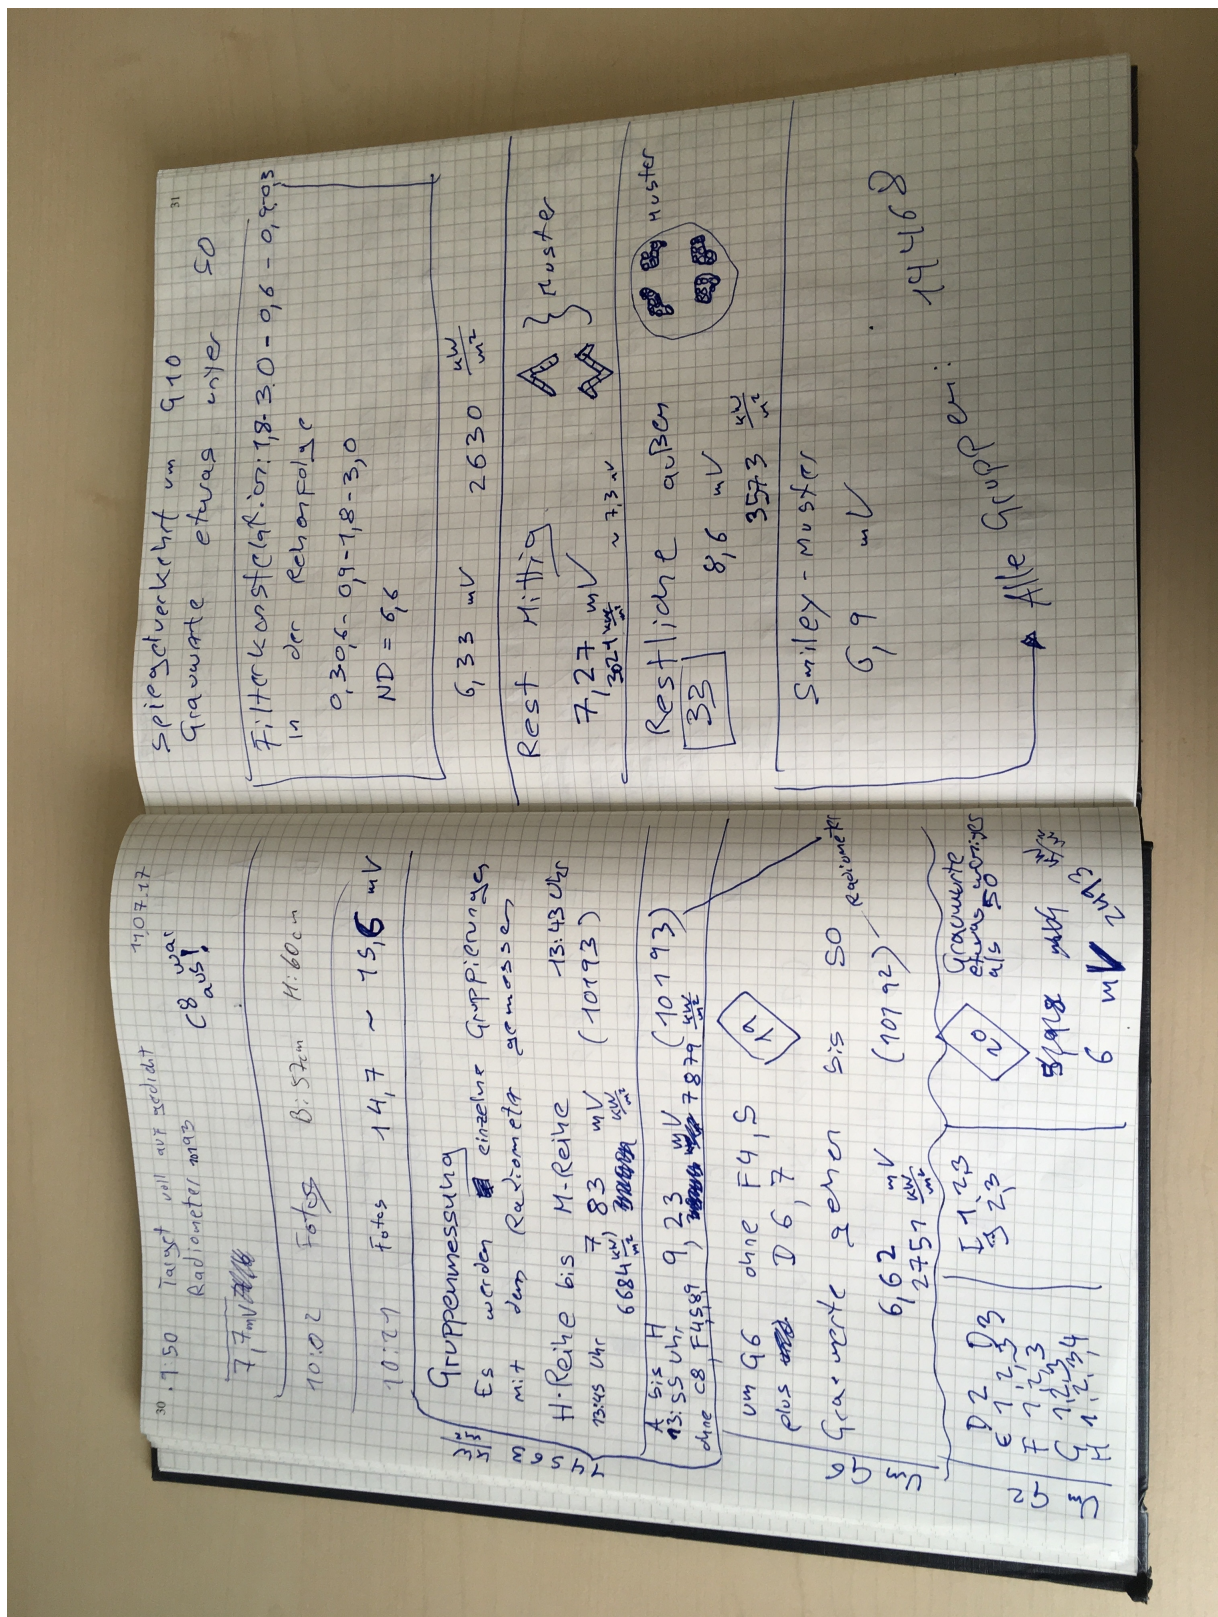 30
11.07.17
9:50 Target voll aufgedreht
Radiometer 10193
C8 war
aus!
7,7 mV
10:02 Fotos B:57cm H:60cm
10:21 Fotos 14,7 ~ 15,6 mV
Gruppenmessung
Es werden einzelne Gruppierungen
mit dem Radiometer gemessen
H-Reihe bis M-Reihe 13:43 Uhr
13:45 Uhr 7,83 mV (10193)
6684 kW/m²
A bis H
13:55 Uhr 9,23 mV (10193)
ohne C8, F4,5,8,9 7879 kW/m²
Radiometer
um G6 ohne F4,5
plus D6,7
19
Grauwerte gehen bis 50
6,62 mV (10192)
2751 kW/m²
D2 D3
E 1,2,3
F 1,2,3
G 1,2,3
H 1,2,3,4
I 1,2,3
J 2,3
20
Grauwerte
etwas weniger
als 50
6 mV 2493
31
Spiegelverkehrt um G10
Grauwerte etwas unter 50
Filterkonstelation: 1,8-3.0-0,6-0,9-03
in der Reihenfolge
0,3 0,6-0,9-1,8-3,0
ND = 6,6
6,33 mV 2630 kW/m²
Rest Mittig
7,27 mV ~ 7,3 mV
3021 kW/m²
Muster
Restliche außen
33
8,6 mV
3573 kW/m²
Muster
Smiley-Muster
6,9 mV
Alle Gruppen: 14468